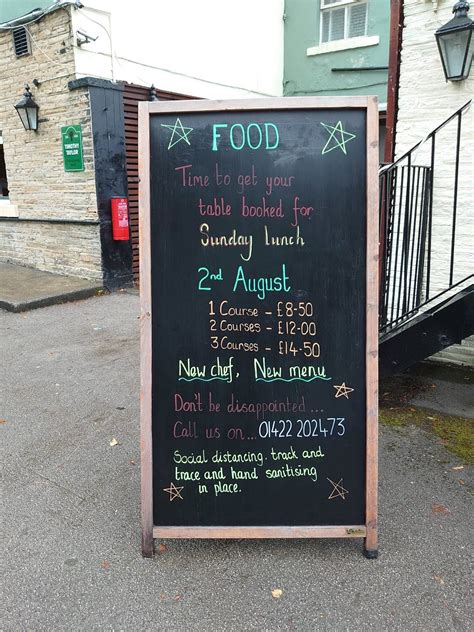 TIMOTHY
TAYLOR
FOOD
Time to get your
table booked for
Sunday lunch
2nd August
1 Course - £8-50
2 Courses - £12-00
3 Courses - £14-50
New chef, New menu
Don't be disappointed ...
Call us on... 01422 202473
Social distancing, track and
trace and hand sanitising
in place.